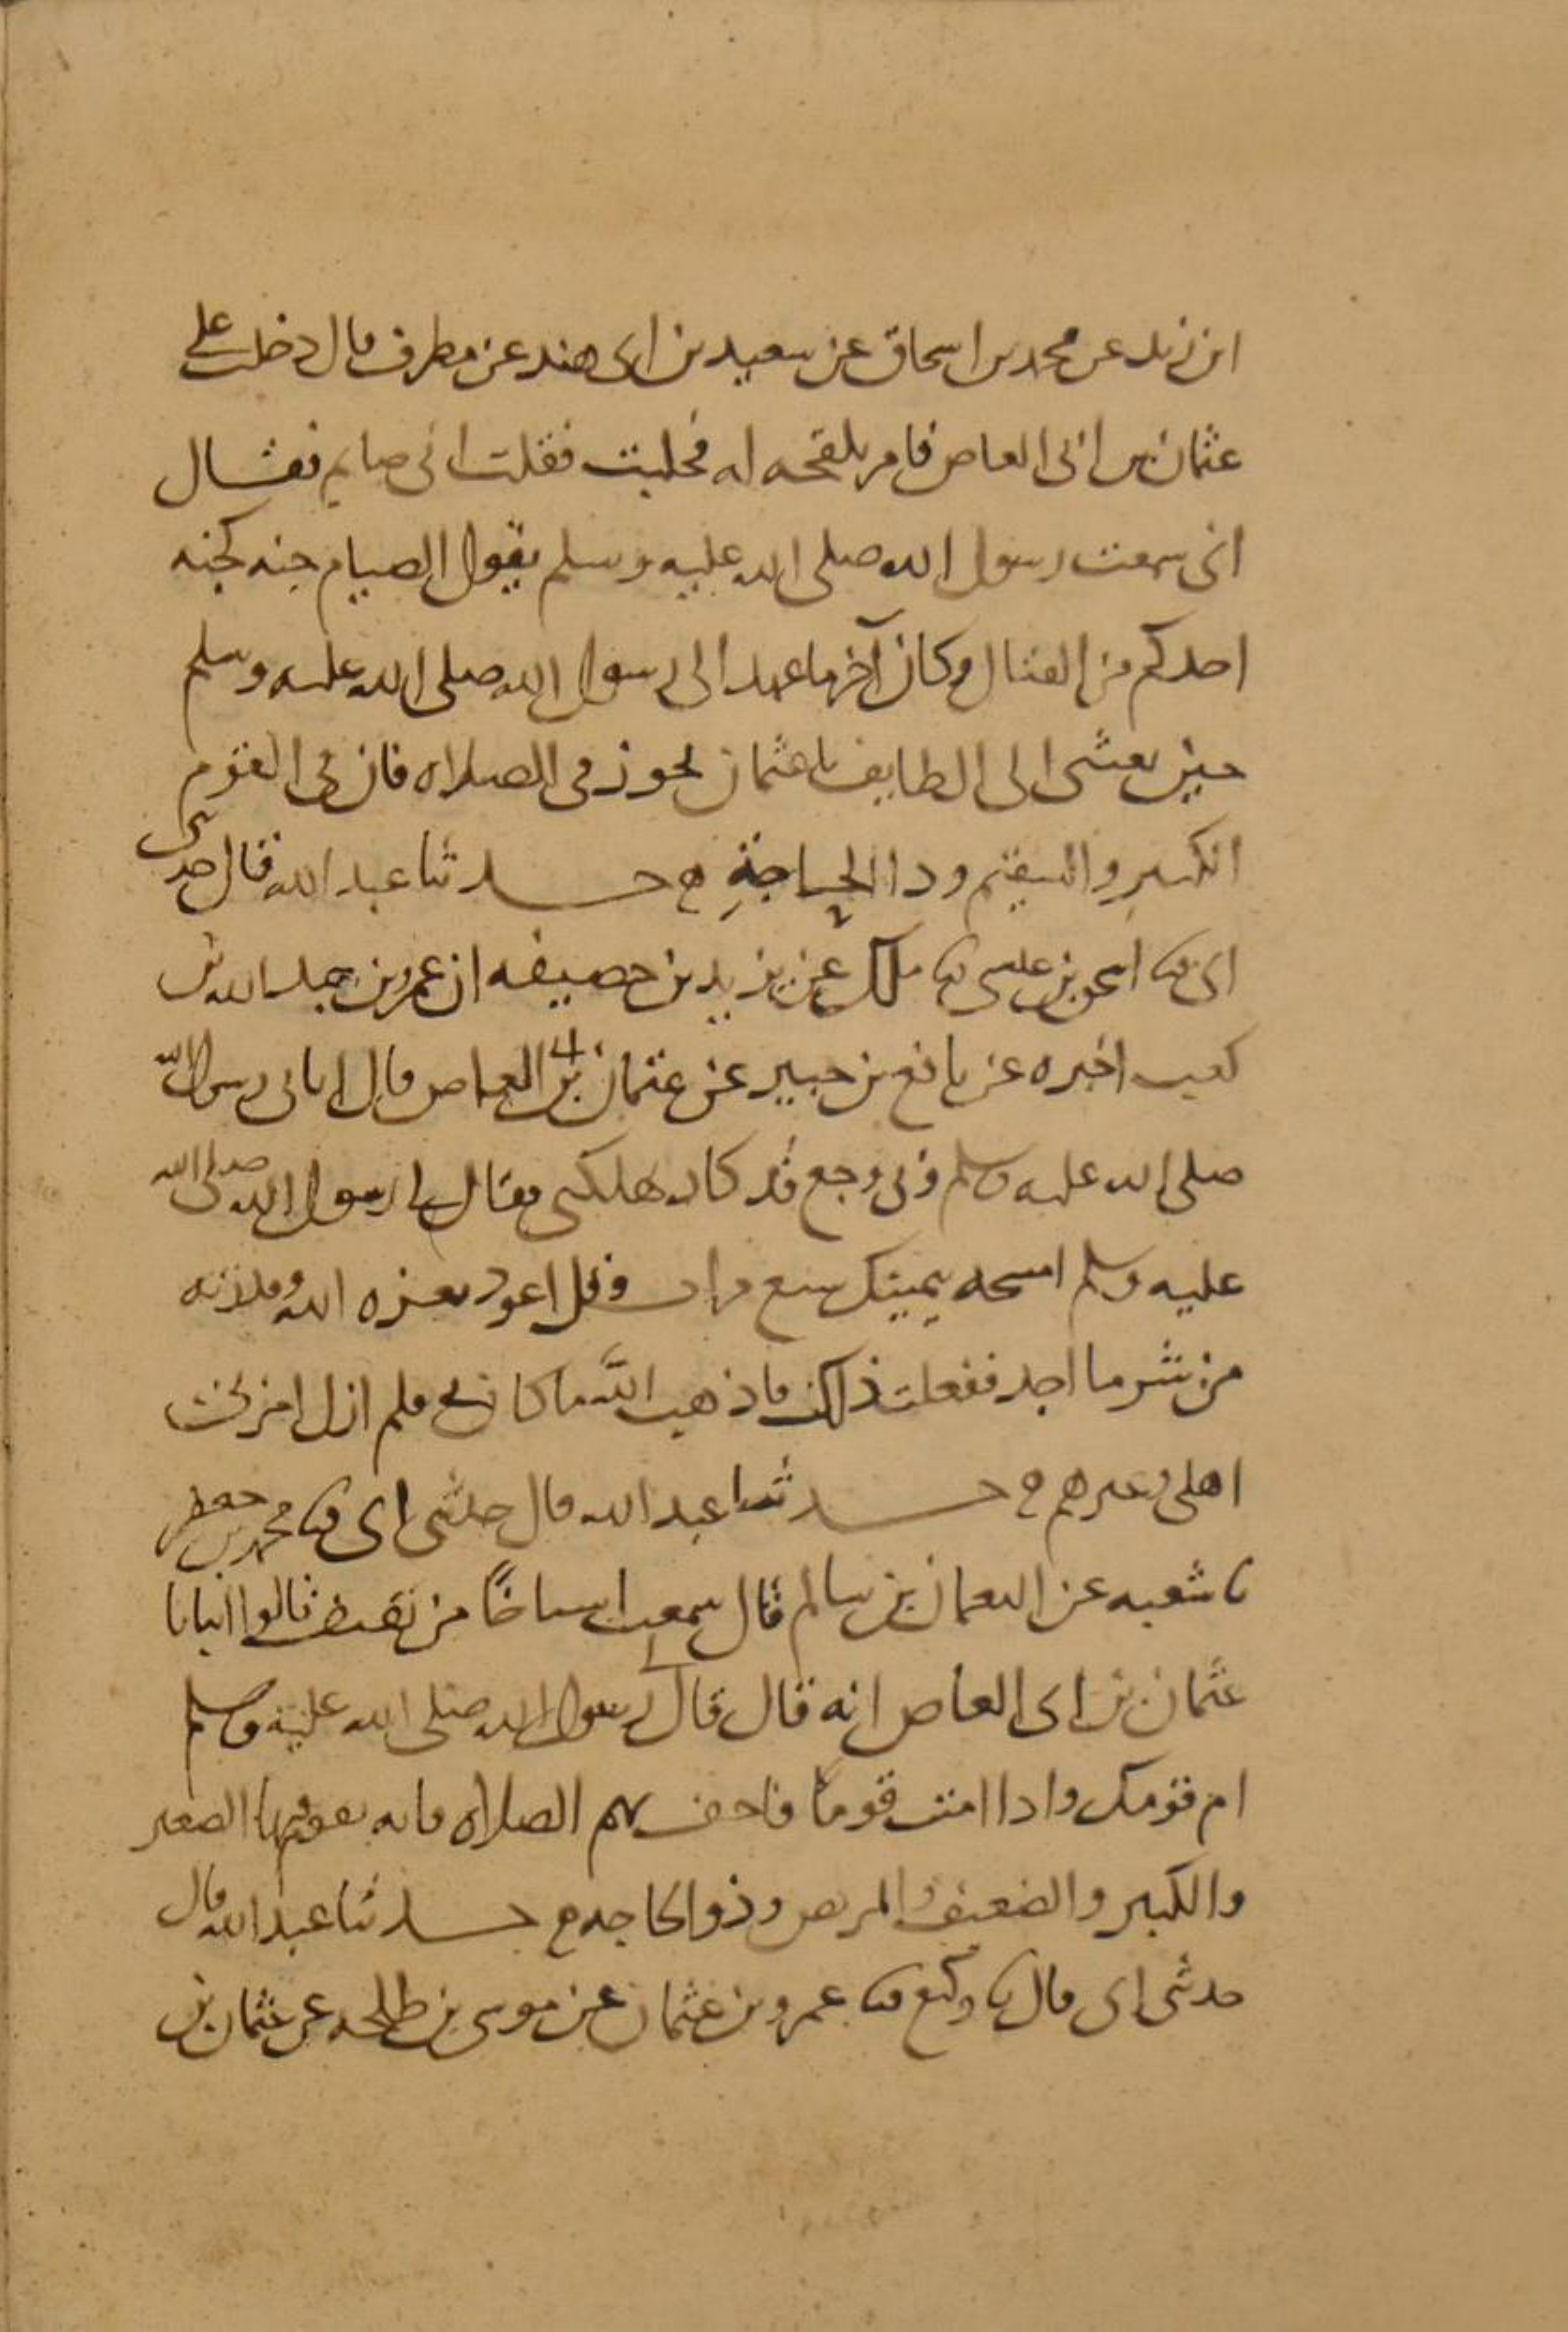 ابن زيد عن محمد بن اسحاق عن سعيد بن ابى هند عن مطرف قال دخلت على
عثمان بن ابى العاص فامر بلقحه له فحلبت فقلت انى صايم فقال
انى سمعت رسول الله صلى الله عليه وسلم يقول الصيام جنه كجنه
احدكم من القتال وكان آخر ما عهد الى رسول الله صلى الله عليه وسلم
حين بعثنى الى الطايف يا عثمان تجوز فى الصلاه فان فى القوم
الكبير والسقيم وذا الحاجة ه حدثنا عبد الله قال حدثنى
ابى ثنا اسحق بن عيسى ثنا ملك عن يزيد بن خصيفه ان عمرو بن عبد الله بن
كعب اخبره عن نافع بن جبير عن عثمان بن ابى العاص قال اتانى رسول الله
صلى الله عليه وسلم وبى وجع قد كاد يهلكنى فقال لى رسول الله صلى الله
عليه وسلم امسحه بيمينك سبع مرات وقل اعوذ بعزه الله وقدرته
من شر ما اجد ففعلت ذلك فاذهب الله ما كان بى فلم ازل امر به
اهلى وغيرهم ه حدثنا عبد الله قال حدثنى ابى ثنا محمد بن جعفر
نا شعبه عن النعمان بن سالم قال سمعت اشياخا من ثقيف قالوا انبانا
عثمان بن ابى العاص انه قال قال لى رسول الله صلى الله عليه وسلم
ام قومك واذا اممت قوما فاخف بهم الصلاه فانه يقوم فيها الصغير
والكبير والضعيف والمريض وذو الحاجه ه حدثنا عبد الله قال
حدثنى ابى قال ثنا وكيع ثنا عمرو بن عثمان عن موسى بن طلحه عن عثمان بن